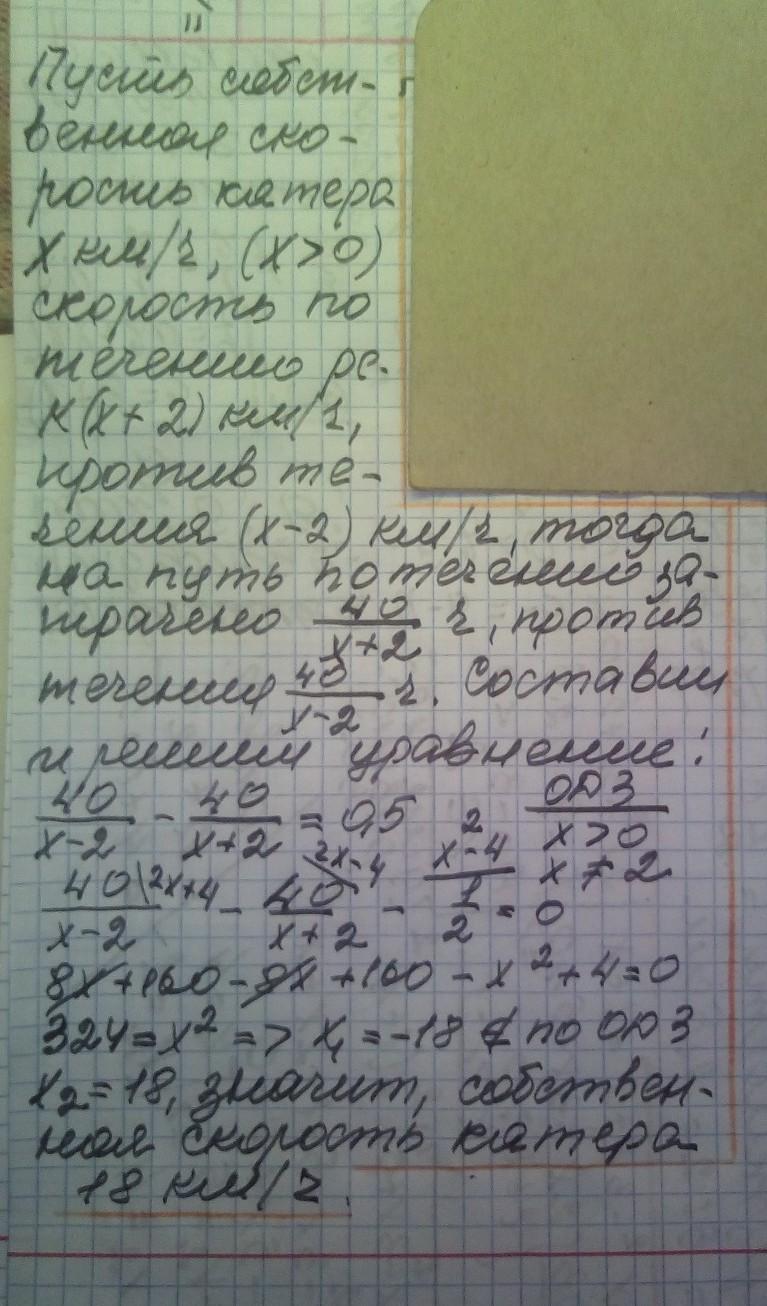 Пусть собст-
венная ско-
рость катера
x км/ч, (x>0)
скорость по
течению ре-
к(x+2) км/ч,
против те-
чения (x-2) км/ч, тогда
на путь по течению за-
трачено 40/(x+2) ч, против
течения 40/(x-2) ч. Составим
и решим уравнение:
40/(x-2) - 40/(x+2) = 0,5 ОДЗ
x>0
x≠2
40\2x+4/(x-2) - 40\2x-4/(x+2) - 1\x²-4/2 = 0
8x+160-8x+160-x²+4=0
324=x² => x₁=-18 ∉ по ОДЗ
x₂=18, значит, собствен-
ная скорость катера
18 км/ч.